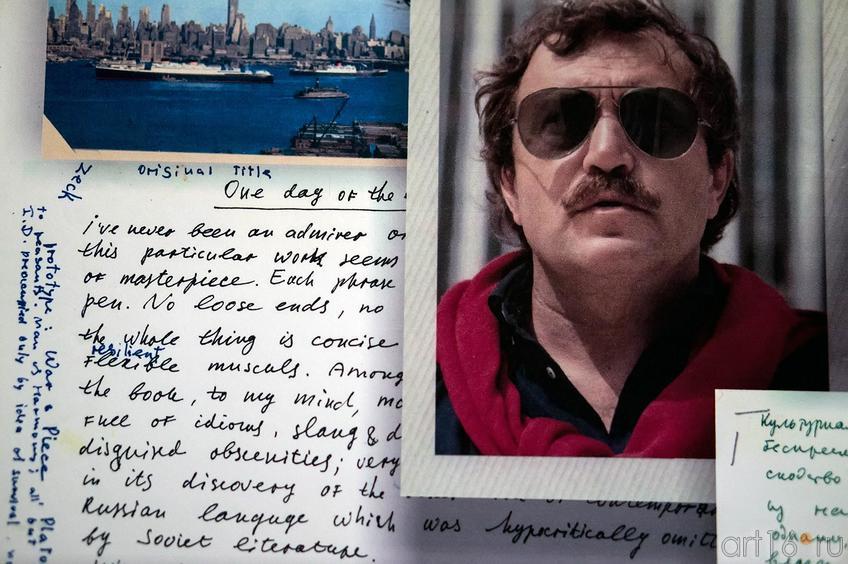 Original Title
One day of the
i've never been an admirer
this particular work seems
of masterpiece. Each phrase
pen. No loose ends, no
the whole thing is concise
resilient
Flexible musculs. Among
the book, to my mind,
Full of idioms, slang &
disguised obscenities; very
in its discovery of the
Russian languge which
by Soviet literature.
was hypocritically
prototype: War & Piece Plato
to peasants' man vs Harmony; all but
I.D. preoccupied only by idea of survival
сходство
из
art16.ru